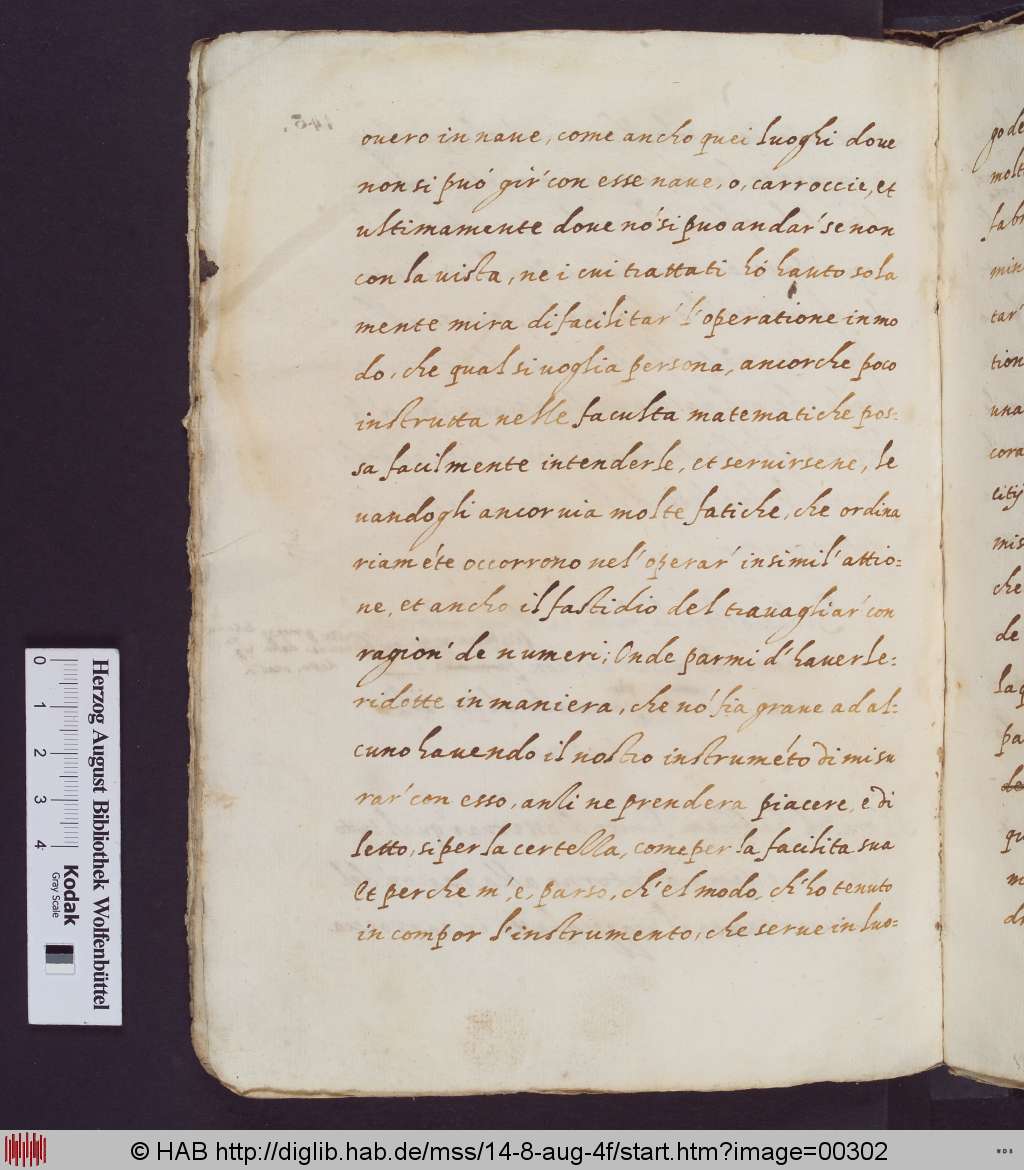 ouero in naue, come ancho quei luoghi doue
non si può gir' con esse naue, o, carroccie, et
ultimamente doue nó si puo andar' se non
con la uista, ne i cui trattati hó hauto sola
mente mira di facilitar' l'operatione in mo
do, che qual si uoglia persona, ancorche poco
instrutta nelle faculta matematiche pos=
sa facilmente intenderle, et seruirsene, le
uandogli ancor uia molte fatiche, che ordina
riaméte occorrono nel' operar' in simil' attio=
ne, et ancho il fastidio del trauagliar' con
ragion' de numeri; Onde parmi d'hauerle=
ridotte in maniera, che nó sia graue ad al=
cuno hauendo il nostro instruméto di misu
rar' con esso, anzi ne prendera piacere, e di
letto, si per la certezza, come per la facilita sua
Et perche m', e, parso, ch' el modo, ch' ho tenuto
in compor l'instrumento, che serue in luo=
go de
molt
fabr
min
tar'
tion
una
cora
citij
mis
che
de
la q
pa
qu
m
di
0 1 2 3 4
Herzog August Bibliothek Wolfenbüttel
Kodak
Gray Scale
© HAB http://diglib.hab.de/mss/14-8-aug-4f/start.htm?image=00302